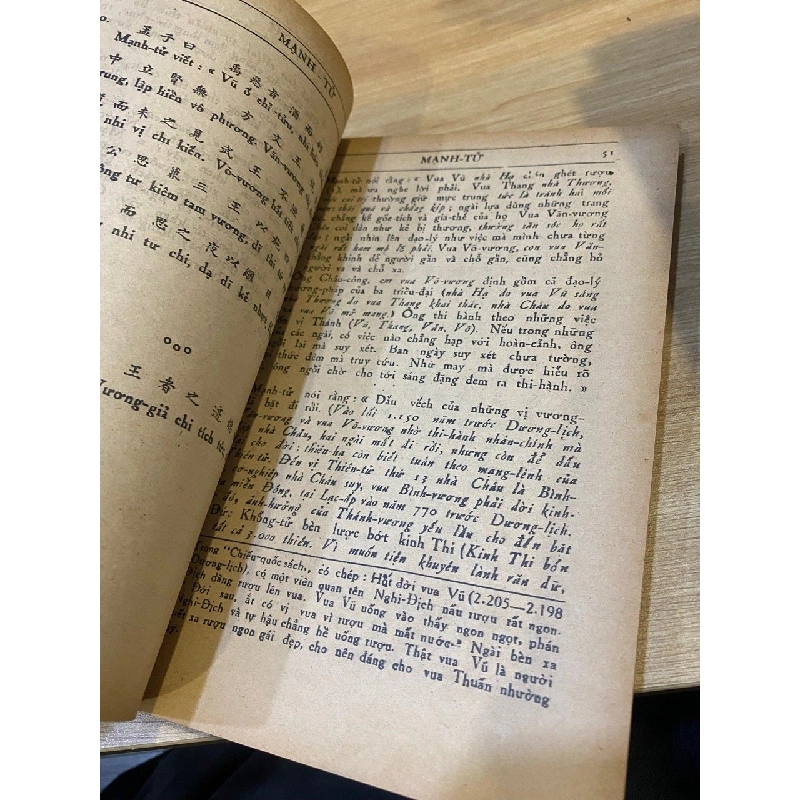 MẠNH - TỬ
孟子曰 禹惡旨酒而
Mạnh-tử viết : « Vũ ố chỉ-tửu, nhi
中立賢無方文王
trung, lập hiền vô phương. Văn-vương
而未之見武王不
nhi vị chi kiến. Võ-vương bất tiết
公思兼三王以
tư kiêm tam vương, dĩ thi
而思之夜以繼日
nhi tư chi, dạ dĩ kế nhựt
ooo
王者之迹
Vương-giả chi tích
MẠNH-TỬ 51
Mạnh-tử nói rằng : « Vua Vũ nhà Hạ chán ghét rượu
mà ưa nghe lời phải. Vua Thang nhà Thương,
coi trị thường giữ mực trung tức là tránh hai mối
thái quá và chẳng kịp ; ngài lựa dùng những trang
chẳng kể gốc-tích và gia-thế của họ Vua Văn-vương
coi dân như kẻ bị thương, thường săn sóc họ rất
; ngài nhìn lên đạo-lý như việc mà mình chưa từng
rất ham mộ lẽ phải. Vua Võ-vương, con vua Văn-
chẳng khinh dể người gần và chỗ gần, cũng chẳng bỏ
người xa và chỗ xa.
Ông Châu-công, em vua Võ-vương định gồm cả đạo-lý
phương-pháp của ba triều-đại (nhà Hạ do vua Vũ sáng
Thương do vua Thang khai thác, nhà Châu do vua
Võ mở mang.) Ông thi hành theo những việc
vị Thánh (Vũ, Thang, Văn, Võ). Nếu trong những
các ngài, có việc nào chẳng hạp với hoàn-cảnh, ông
lại mà suy xét. Ban ngày suy xét chưa tường,
thức đêm mà truy cứu. Nhờ may mà được hiểu rõ
ông ngồi chờ cho tới sáng đặng đem ra thi-hành. »
Mạnh-tử nói rằng : « Dấu vếch của những vị vương-
bặt đi rồi. (Vào lối 1.150 năm trước Dương-lịch,
Văn-vương và vua Võ-vương nhờ thi-hành nhân-chính mà
nhà Châu, hai ngài mất đi rồi, nhưng còn để dấu
cho đời : thiên-hạ còn biết tuân theo mạng-lịnh của
Thiên-tử. Đến vị Thiên-tử thứ 13 nhà Châu là Bình-
cơ-nghiệp nhà Châu suy, vua Bình-vương phải dời kinh-
miền Đông, tại Lạc-ấp vào năm 770 trước Dương-lịch.
đó, ảnh-hưởng của Thánh-vương yếu lần cho đến bặt
Đức Khổng-tử bèn lược bớt kinh Thi (Kinh Thi bổn
tất cả 3.000 thiên. Vì muốn tiện khuyên lành răn dữ,
Trong "Chiến-quốc sách„, có chép : Hồi đời vua Vũ (2.205—2.198
Dương-lịch), có một viên quan tên Nghi-Địch nấu rượu rất ngon.
Địch dâng rượu lên vua. Vua Vũ uống vào thấy ngon ngọt, phán
Đời sau, ắt có vị vua vì rượu mà mất nước." Ngài bèn xa
Nghi-Địch và tự hậu chẳng hề uống rượu. Thật vua Vũ là người
xa rượu ngon gái đẹp, cho nên đáng cho vua Thuấn nhường